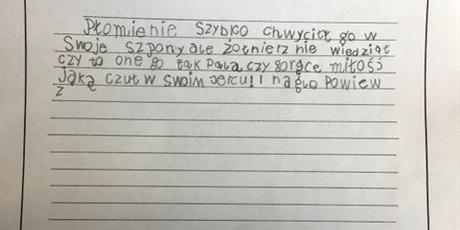 Płomienie szybko chwycił go w
swoje szpony ale żołnierz nie wiedział
czy to one go tak palą czy gorące miłość
Jaką czuł w swoim sercu! I nagło powiew
z